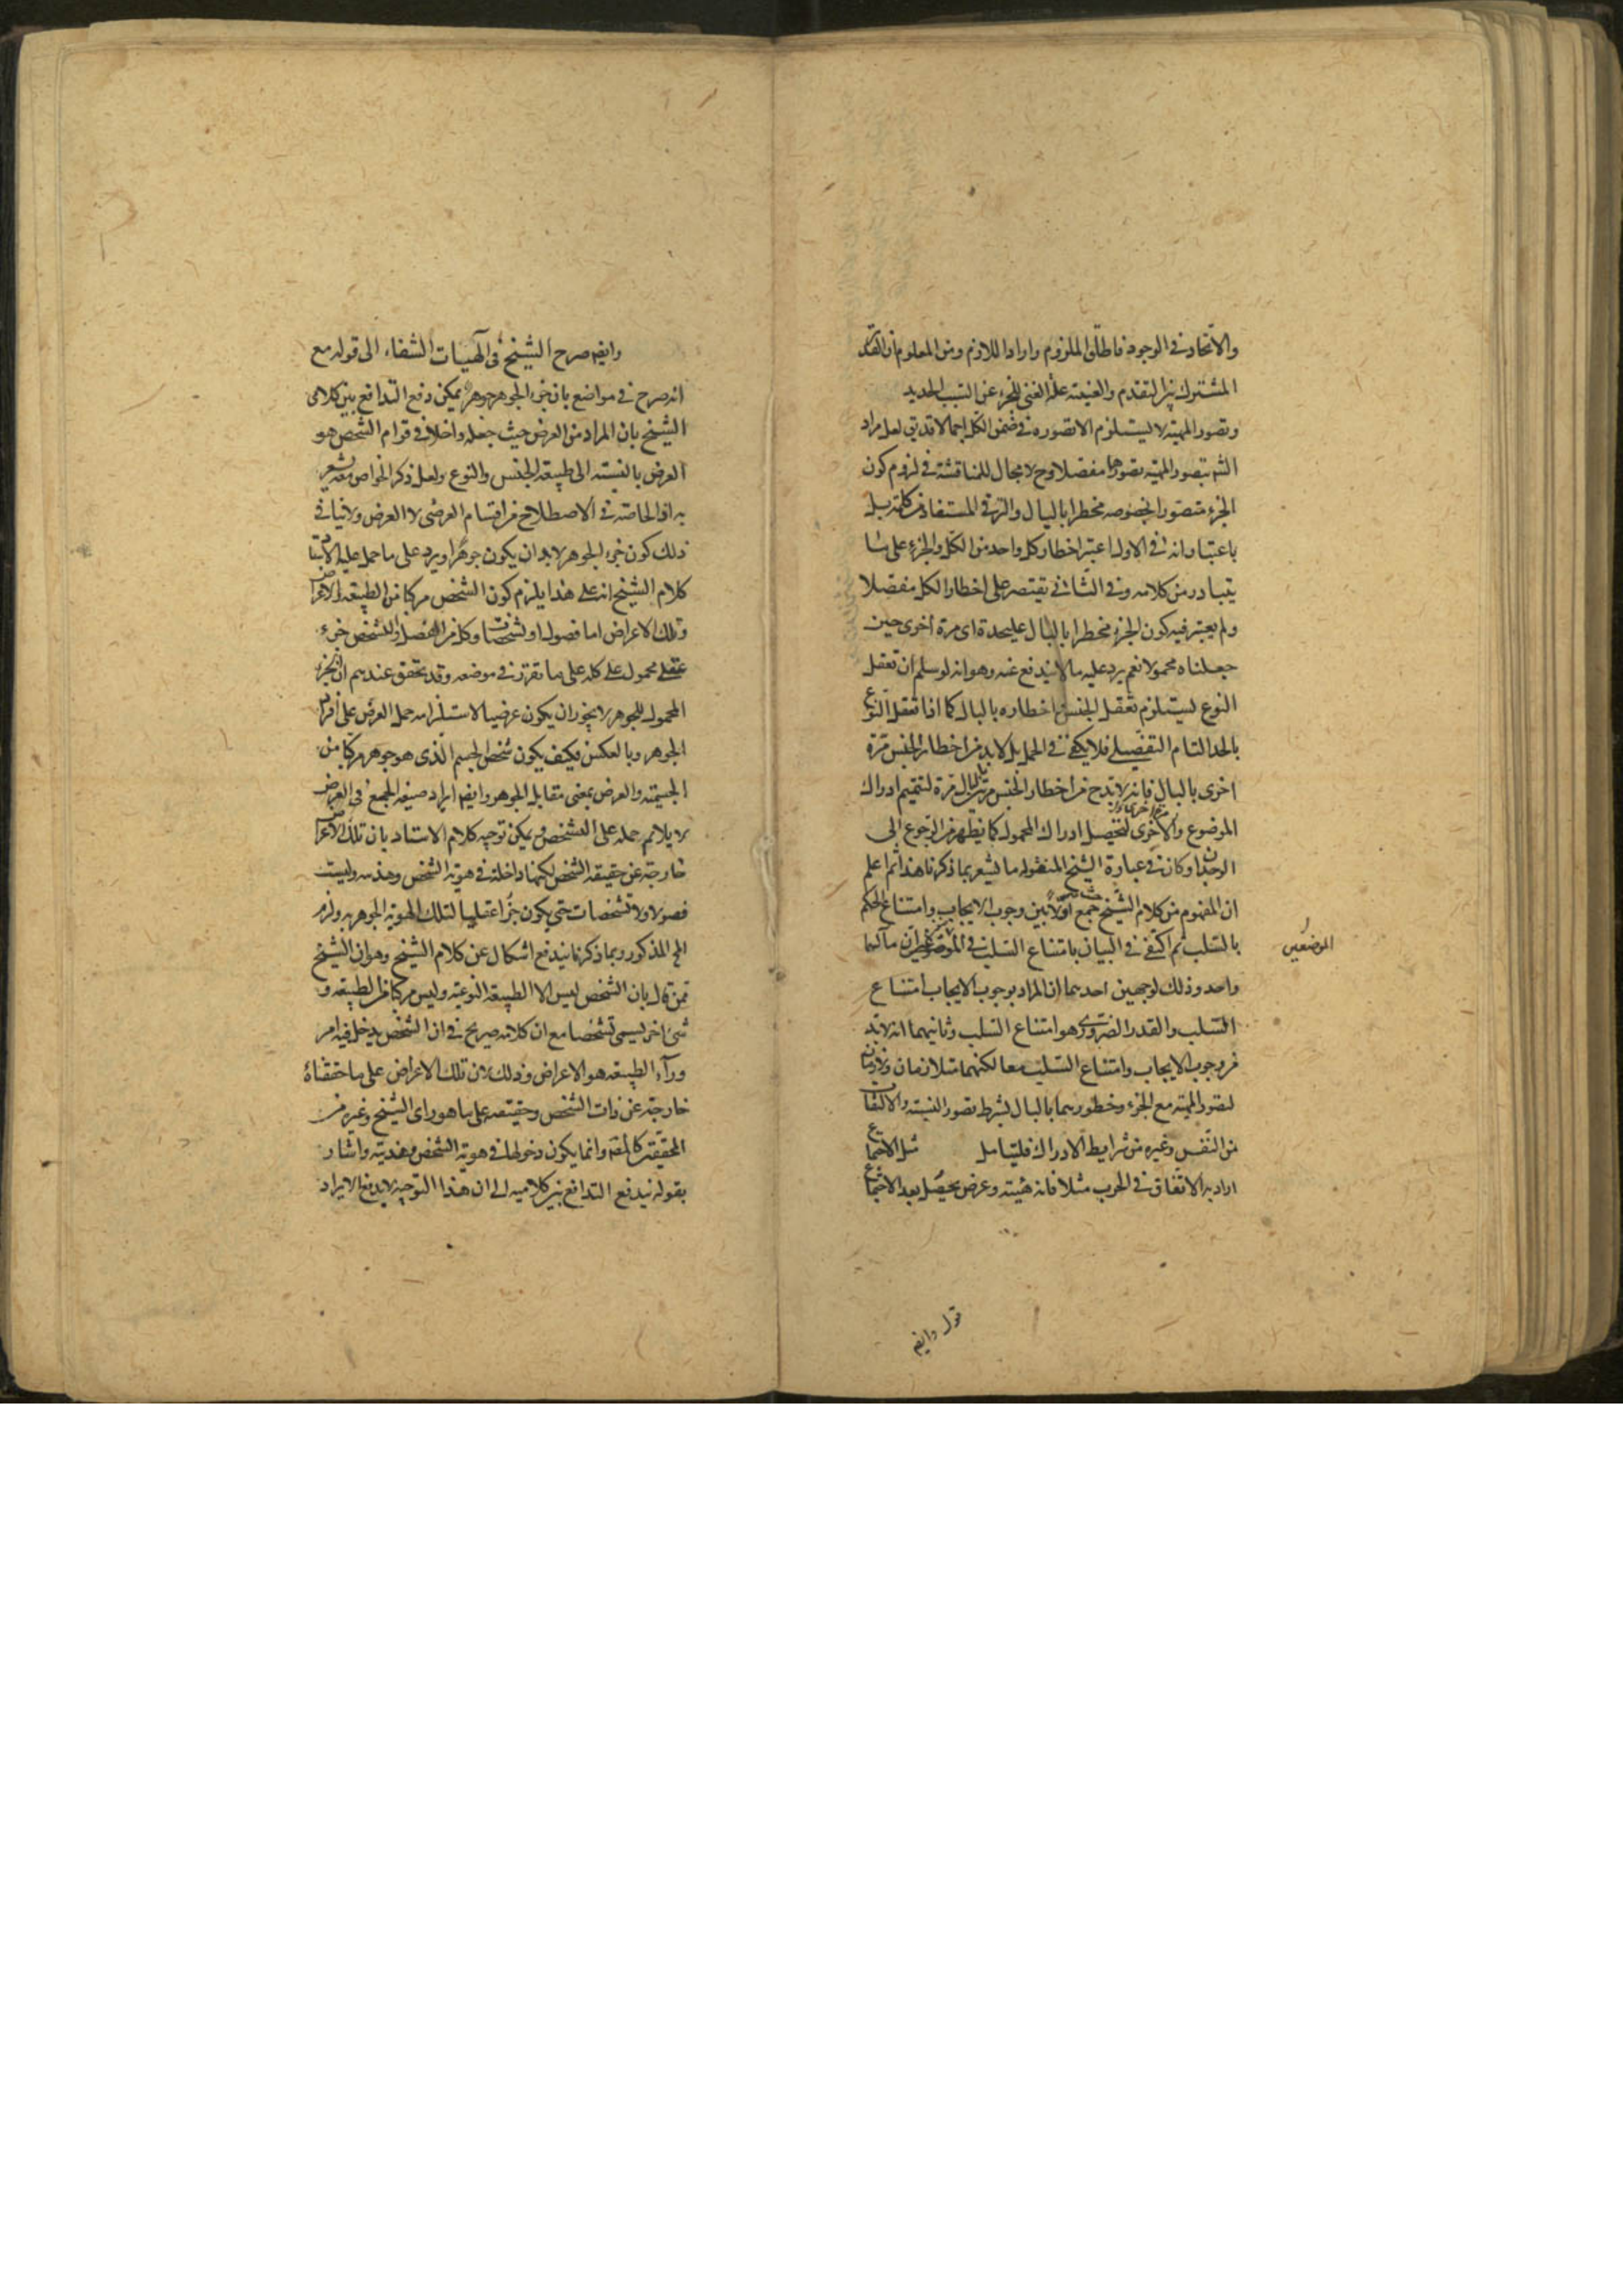 والاتحاد في الوجود فاطلق الملزوم واراد اللازم ومن المعلوم ان القدر
المشترك بين التقدم والغيبته على الغنى للجزء عن السبب الجديد
وتصور المهية لا يستلزم الا تصوره في ضمن الكل اجمالا قد بقى لعل مراد
الشم بتصور المهية تصورها مفصلا وح لا مجال للمناقشة في لزوم كون
الجزء متصورا بخصوصه مخطرا بالبال والترقي المستفاد من كلمة بل
باعتبار انه في الاول اعتبر اخطار كل واحد من الكل والجزء على ما
يتبادر من كلامه وفي الثاني يقتصر على اخطار الكل مفصلا
ولم يعتبر فيه كون الجزء مخطرا بالبال عليحدة اى مرة اخرى حين
جعلناه محمولا نعم يرد عليه ما لا يندفع عنه وهو انه لو سلم ان تعقل
النوع يستلزم تعقل الجنس واخطاره بالبال كما اذا تعقل النوع
بالحد التام التفصيلي فلا يكفي في الحمل بل لابد من اخطار الجنس مرة
اخرى بالبال فانه لابد ح من اخطار الجنس مرتين بالبال مرة لتتميم ادراك
الموضوع والاخرى لتحصيل ادراك المحمول كما يظهر من الرجوع الى
الوجدان وكان في عبارة الشيخ المنقولة ما يشعر بما ذكرنا هذا ثم اعلم
ان المفهوم من كلام الشيخ حيث جمع اولا بين وجوب الايجاب وامتناع الحكم
بالسلب ثم اكتفى في البيان بامتناع السلب في الموضعين ان مآلهما
الموضعين
واحد وذلك لوجهين احدهما ان المراد بوجوب الايجاب امتناع
السلب والقدر الضرورى هو امتناع السلب وثانيهما انه لابد
من وجوب الايجاب وامتناع السلب معا لكنهما متلازمان ولازمان
لتصور المهية مع الجزء وخطورهما بالبال بشرط تصور النسبة والالتفات
من النفس وغيره من شرايط الادراك فليتامل مثل الاجتماع
اراد به الاتفاق في الحرب مثلا فانه هيئة وعرض يحصل بعد الاجتماع
قوله وايضه
وايضه صرح الشيخ في الهيات الشفاء الى قوله مع
انه صرح في مواضع بان جزء الجوهر جوهر يمكن دفع التدافع بين كلامى
الشيخ بان المراد من العرض حيث جعله داخلا في قوام الشخص هو
العرض بالنسبة الى طبيعة الجنس والنوع ولعل ذكر الخواص معه يشعر
به اذ الخاصة في الاصطلاح من اقسام العرضى لا العرض ولا ينافي
ذلك كون جزء الجوهر لابد ان يكون جوهرا ويرد على ما حمل عليه الاستاد
كلام الشيخ انه على هذا يلزم كون الشخص مركبا من الطبيعة والاعراض
وتلك الاعراض اما فصول او تشخصات وكل من الفصل والتشخص جزء
عقلي محمول على كله على ما تقرر في موضعه وقد تحقق عندهم ان الجزء
المحمول للجوهر لا يجوز ان يكون عرضيا لاستلزامه حمل العرض على افراد
الجوهر وبالعكس فكيف يكون شخص الجسم الذى هو جوهر مركبا من
الجسمية والعرض بمعنى مقابل الجوهر وايضه ايراد صيغة الجمع في العرض
لا يلائم حمله على التشخص ويمكن توجيه كلام الاستاد بان تلك الاعراض
خارجة عن حقيقة الشخص لكنها داخلة في هوية الشخص وهذيه وليست
فصولا ولا تشخصات حتى يكون جزءا عقليا لتلك الهوية الجوهرية ولزم
المح المذكور وبما ذكرنا يندفع اشكال عن كلام الشيخ وهو ان الشيخ
ممن قال بان الشخص ليس الا الطبيعة النوعية وليس مركبا من الطبيعة و
شئ اخر يسمى تشخصا مع ان كلامه صريح في ان الشخص يدخل فيه امر
وراء الطبيعة هو الاعراض وذلك لان تلك الاعراض على ما حققناه
خارجة عن ذات الشخص وحقيقته على ما هو راى الشيخ وغيره من
المحققين كالمصه وانما يكون دخولها في هوية الشخص وهذيته واشار
بقوله يندفع التدافع بين كلاميه الى ان هذا التوجيه لا يدفع الايراد